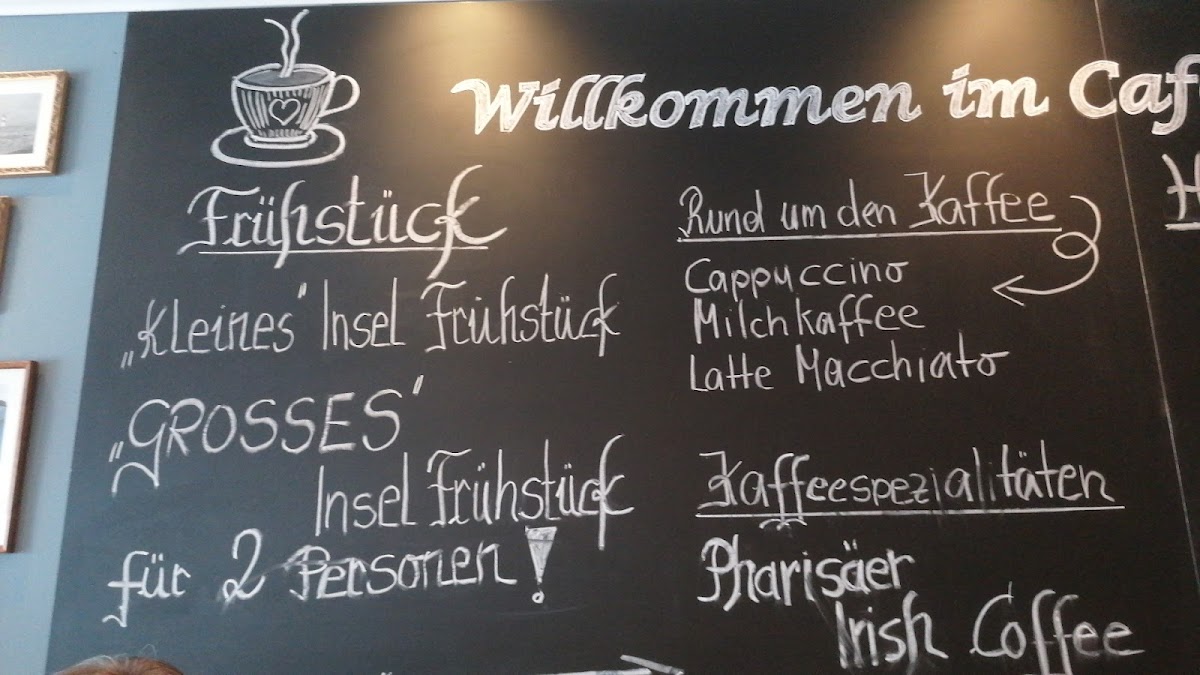 Willkommen im Caf
Frühstück
„Kleines" Insel Frühstück
„GROSSES"
Insel Frühstück
für 2 Personen!
Rund um den Kaffee
Cappuccino
Milchkaffee
Latte Macchiato
Kaffeespezialitäten
Pharisäer
Irish Coffee
H